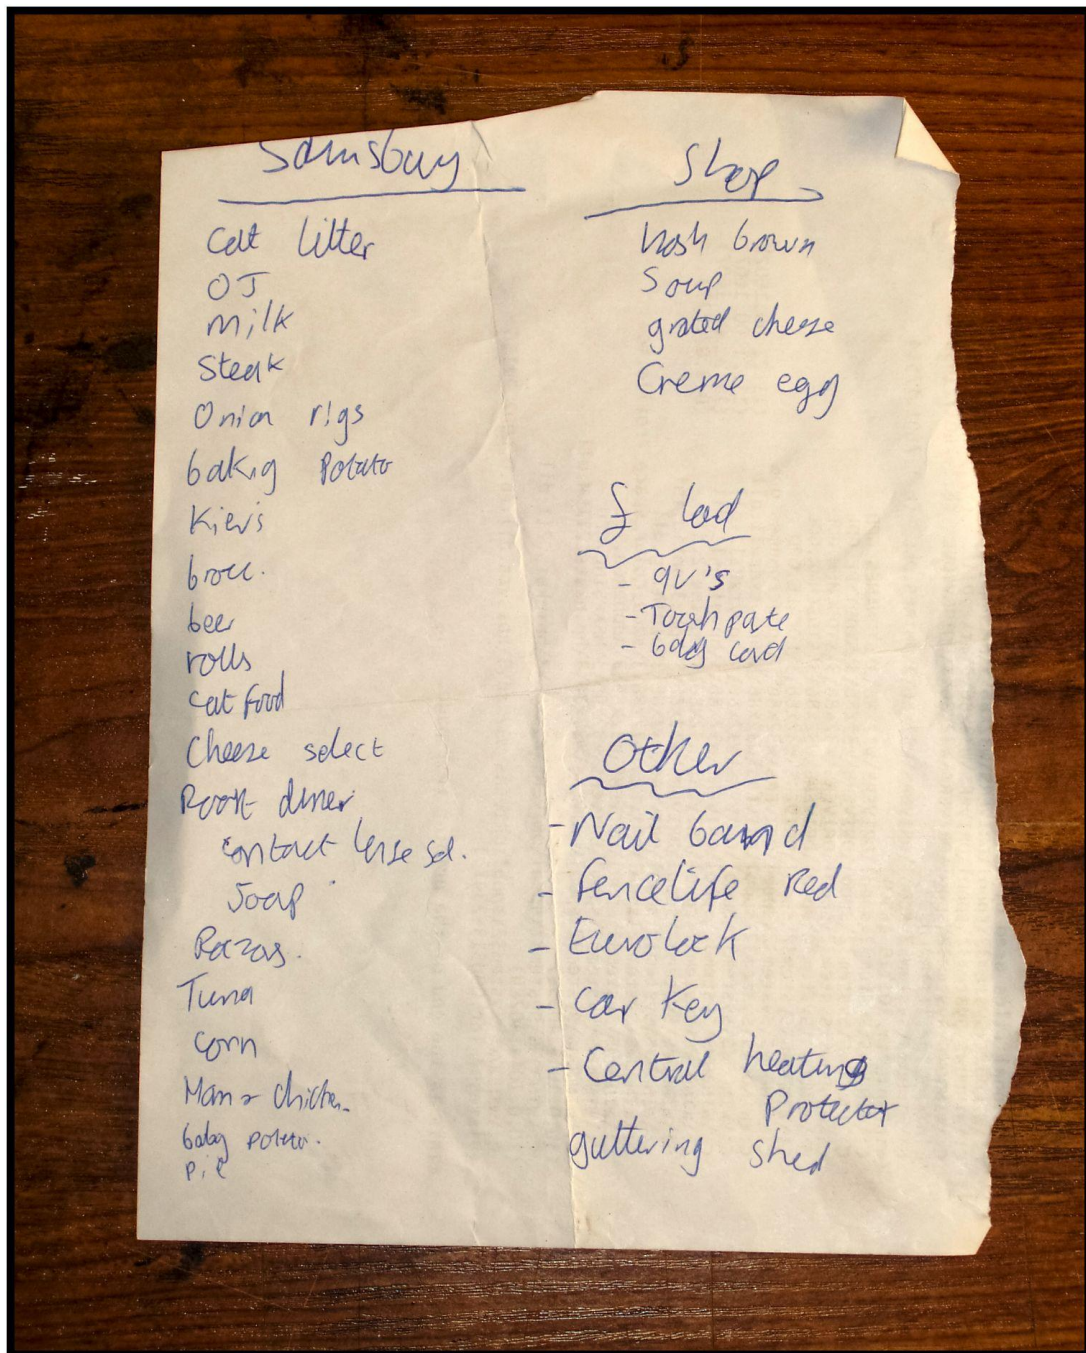 Sainsbury
Cat litter
OJ
milk
Steak
Onion rigs
bakig Potato
Kievs
brocc.
beer
rolls
Cat food
Cheese select
Roast diner
contact lense sol.
Soap
Razors.
Tuna
Corn
chicken
baby potato.
pie
Shop
hash brown
Soup
grated cheese
Creme egg
£ lad
- 9V's
- Toothpate
- bday card
Other
- Nail board
- Fencelife Red
- Eurolock
- Car Key
- Central heating
Protector
guttering shed